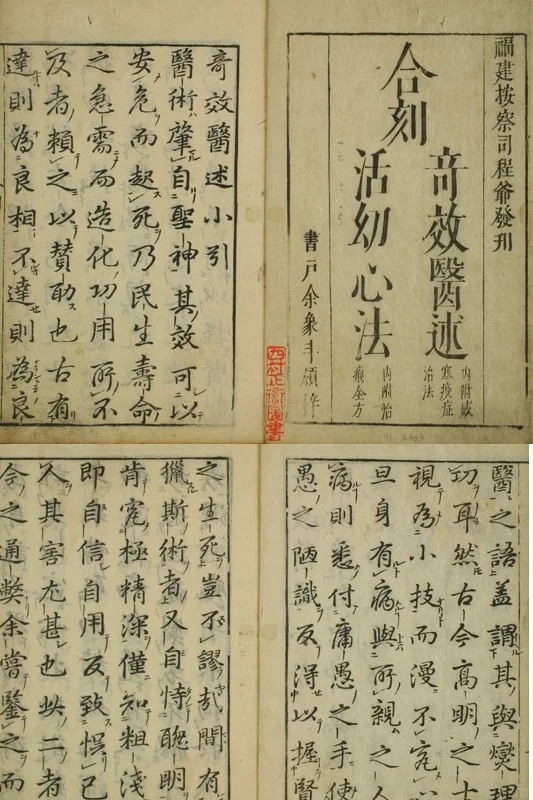 福建按察司程爺發刊
合刻
奇效醫述
內附
寒疫症
治法
活幼心法
內附治
全方
書戶余象斗領梓
奇效醫述小引
醫術肇自聖神其效可以
安危而起死乃民生壽命
之急需而造化功用所不
及者賴之以贊助也古有
達則為良相不達則為良
醫之語蓋謂其與燮理
功耳然古今高明之士
視為小技而漫不究心
旦身有病與所親之人
病則悉付庸愚之手使
愚之陋識反得以握賢
之生死豈不謬哉間有
獵斯術者又自恃聰明
肯究極精深僅知粗淺
即自信自用反致悞已
人其害尤甚也此二者
今之通弊余嘗鑒之而